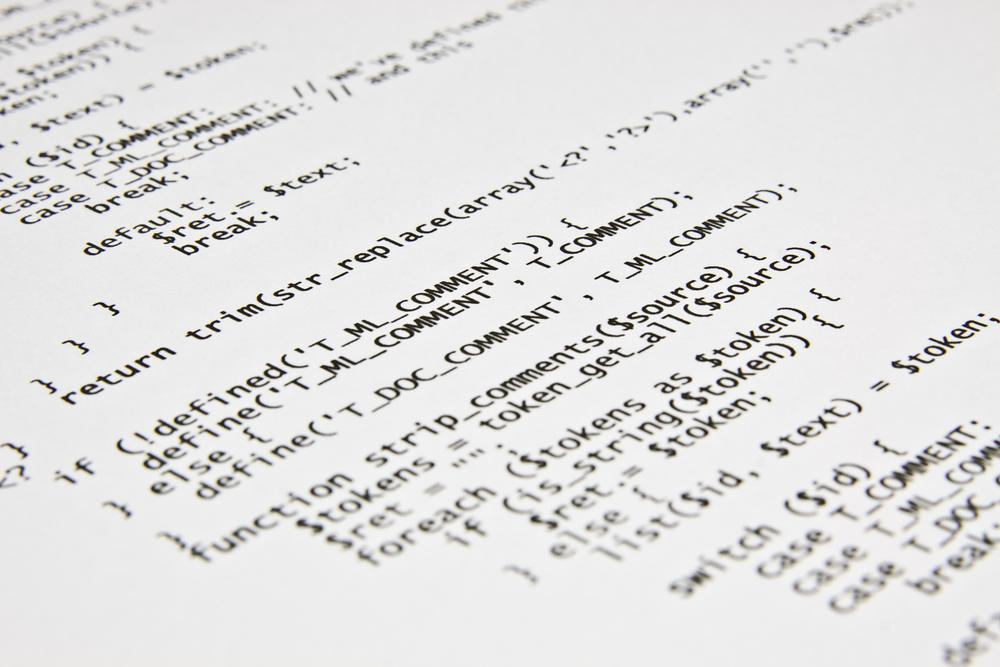 $token)
$token)) {
$text) = $token;
($id) {
case T_COMMENT:
case T_ML_COMMENT: // we've defined
case T_DOC_COMMENT: // and this
break;
default:
$ret .= $text;
break;
}
}
}
return trim(str_replace(array('<?','?>'),array('',''),$ret));
}
<?
if (!defined('T_ML_COMMENT')) {
define('T_ML_COMMENT', T_COMMENT);
} else {
define('T_DOC_COMMENT', T_ML_COMMENT);
}
function strip_comments($source) {
$tokens = token_get_all($source);
$ret = "";
foreach ($tokens as $token) {
if (is_string($token)) {
$ret .= $token;
} else {
list($id, $text) = $token;
switch ($id) {
case T_COMMENT:
case T_ML_COMM
case T_DOC_
break